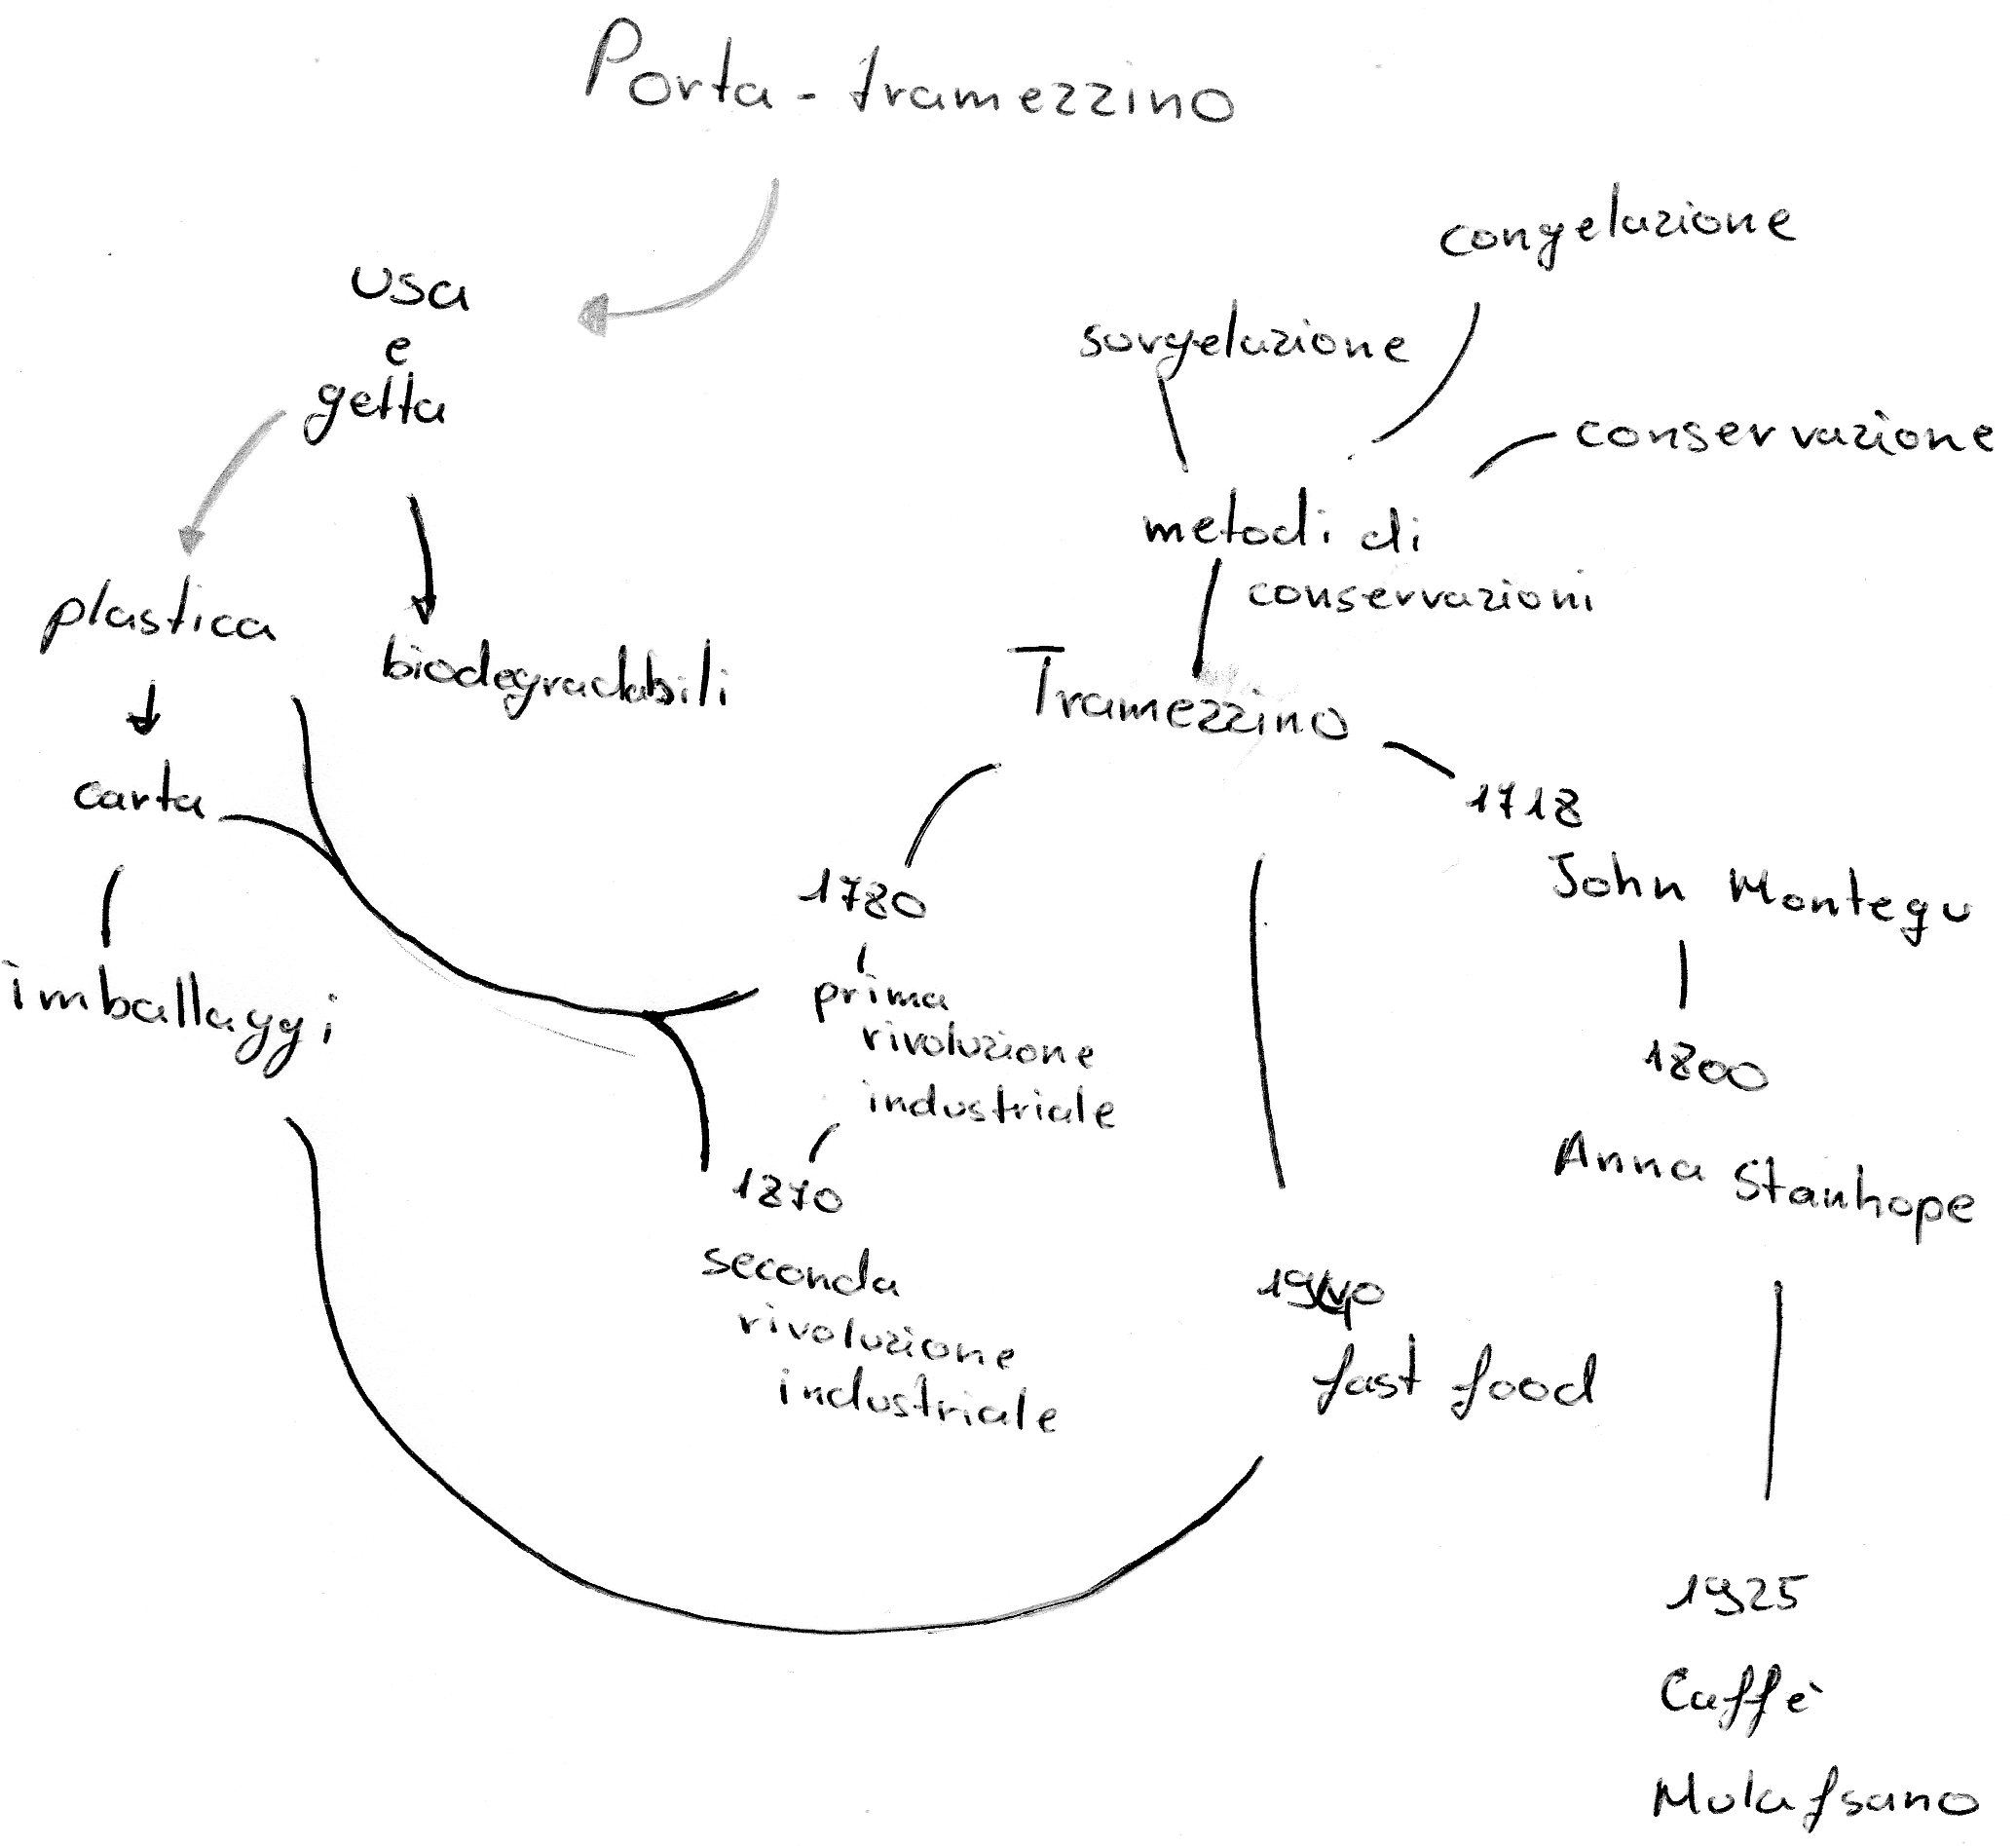 Porta-tramezzino
usa
e
getta
plastica
biodegradabili
carta
imballaggi
congelazione
sorgelazione
conservazione
metodi di
conservazioni
Tramezzino
1780
prima
rivoluzione
industriale
1870
seconda
rivoluzione
industriale
fast food
1718
John Montegu
1800
Anna Stanhope
1925
Caffè
Mulafsano